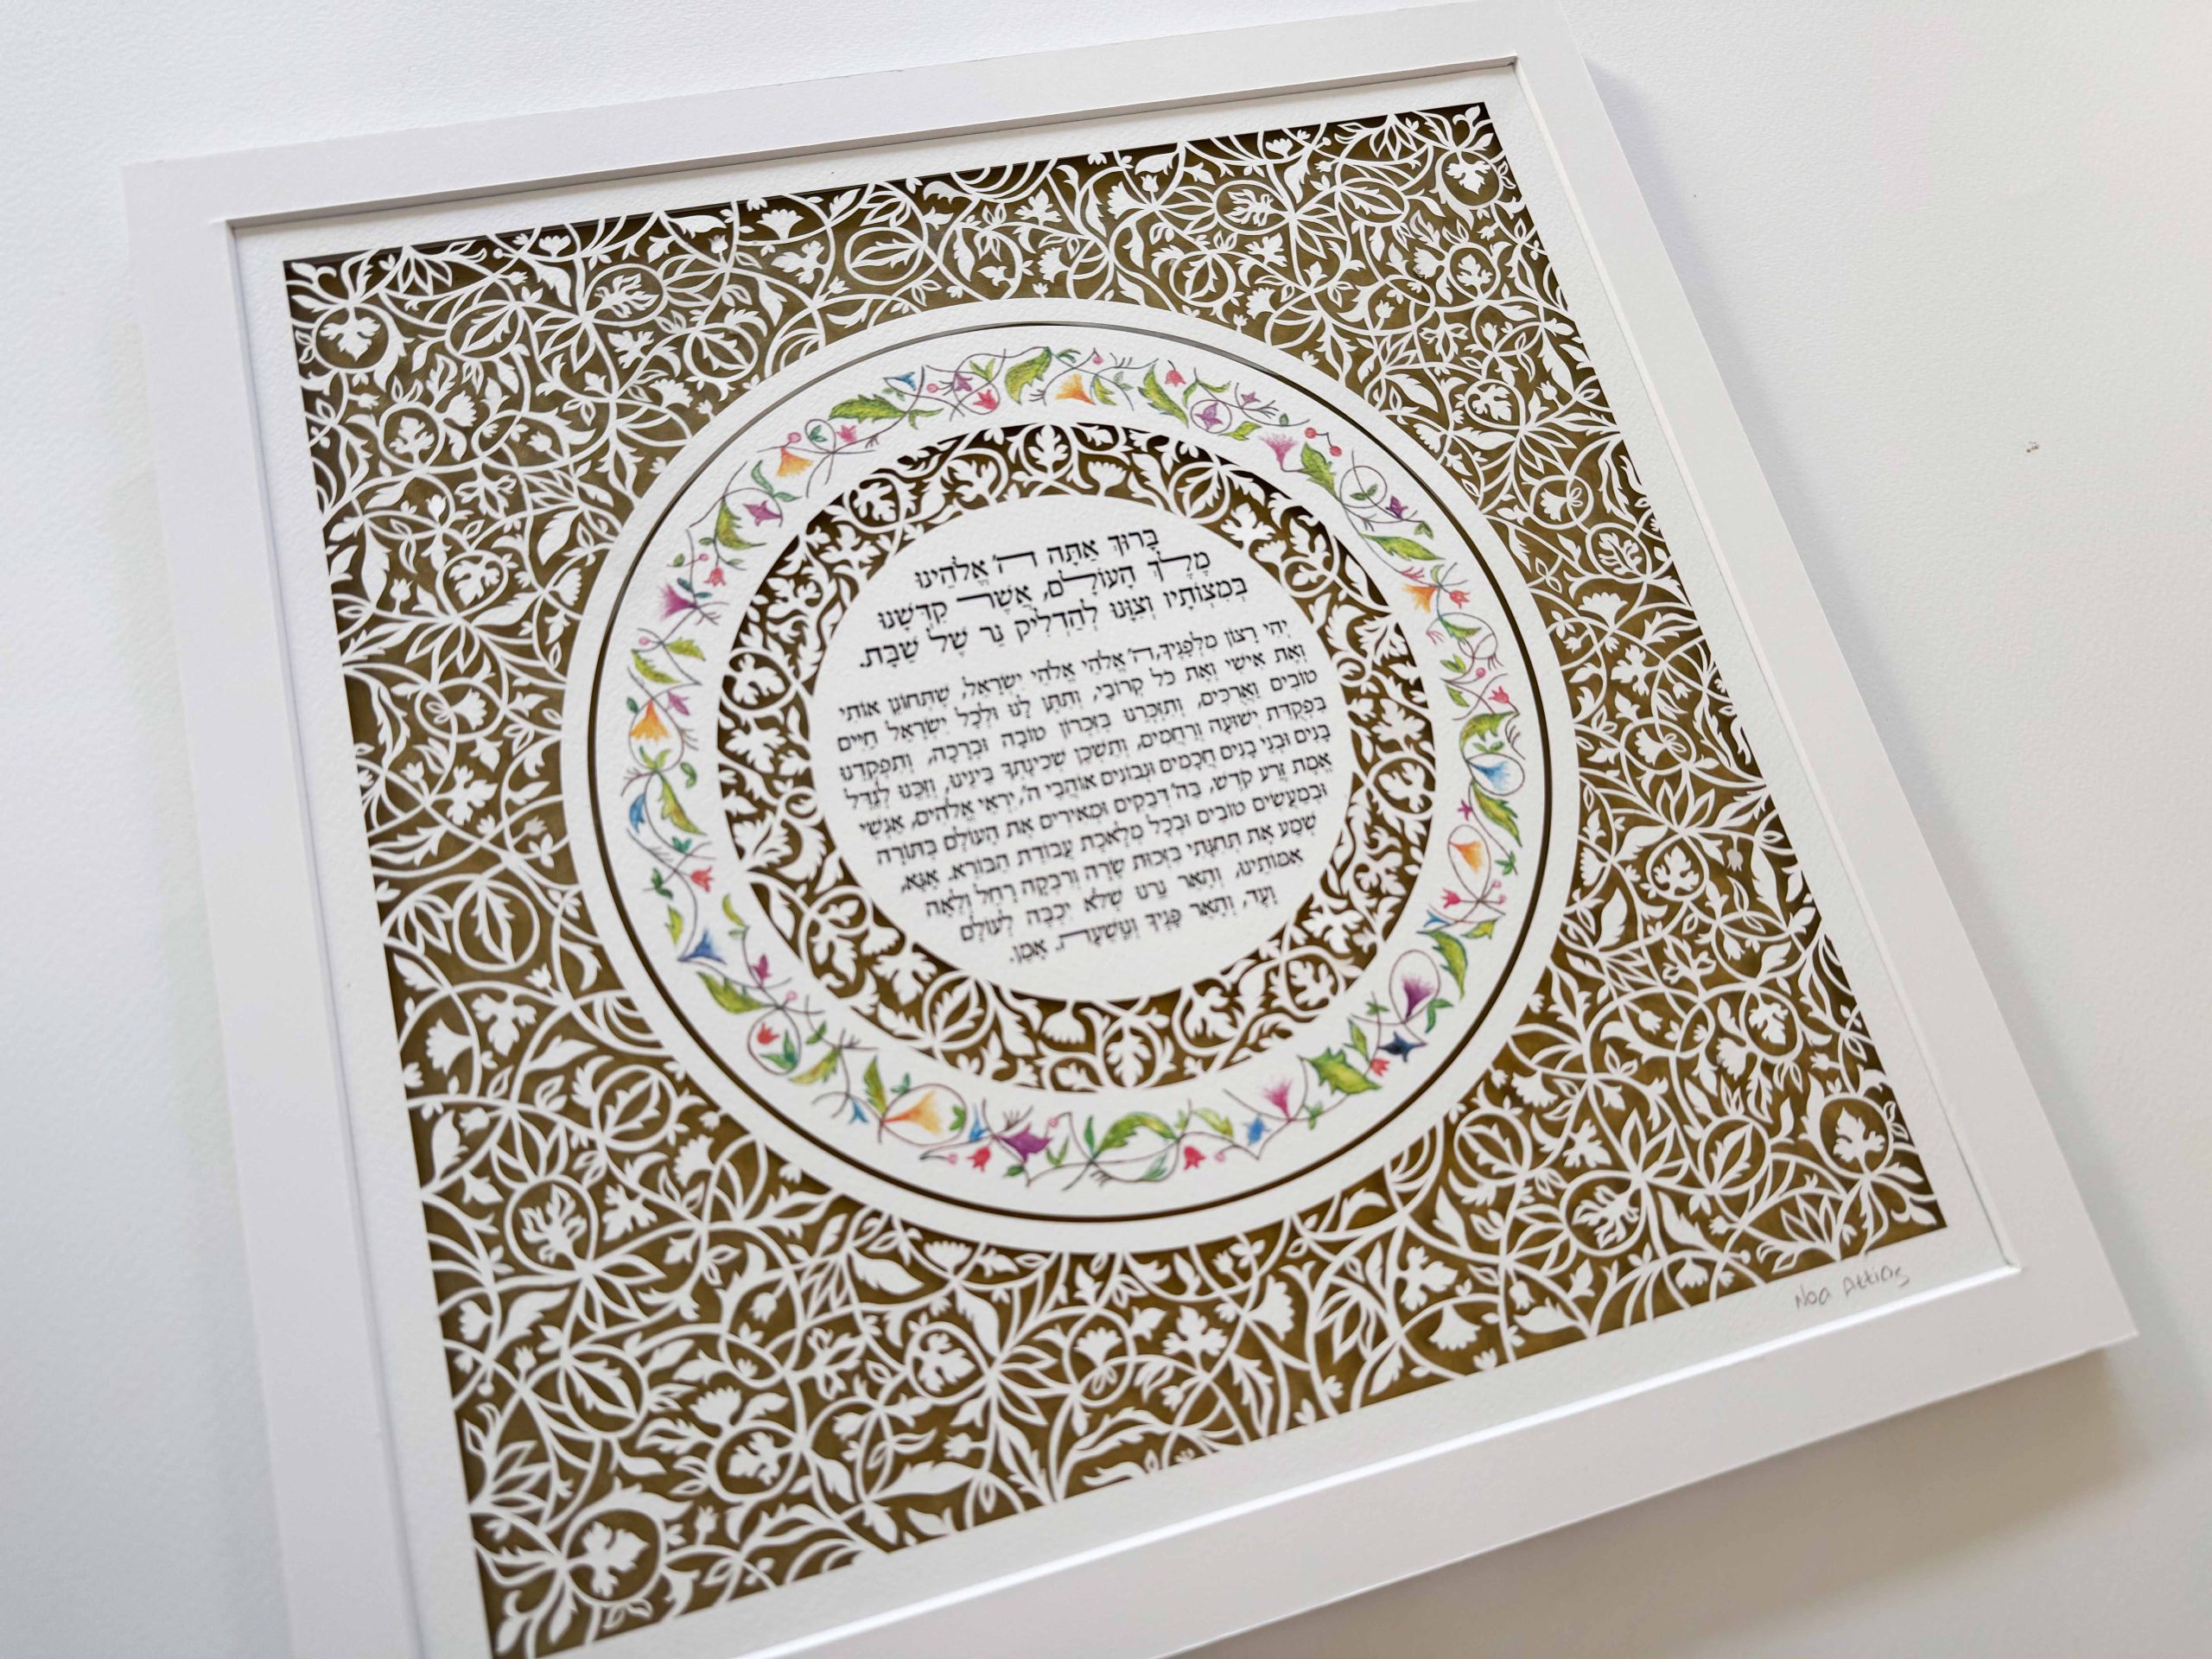 בָּרוּךְ אַתָּה ה' אֱלֹהֵינוּ
מֶלֶךְ הָעוֹלָם, אֲשֶׁר קִדְּשָׁנוּ
בְּמִצְוֹתָיו וְצִוָּנוּ לְהַדְלִיק נֵר שֶׁל שַׁבָּת.
יְהִי רָצוֹן מִלְּפָנֶיךָ, ה' אֱלֹהַי אֱלֹהֵי יִשְׂרָאֵל, שֶׁתְּחוֹנֵן אוֹתִי
וְאֶת אִישִׁי וְאֶת כֹּל קְרוֹבַי, וְתִתֵּן לָנוּ וּלְכָל יִשְׂרָאֵל חַיִּים
טוֹבִים וַאֲרֻכִּים, וְתִזְכְּרֵנוּ בְּזִכְרוֹן טוֹבָה וּבְרָכָה, וְתִפְקְדֵנוּ
בִּפְקֻדַּת יְשׁוּעָה וְרַחֲמִים, וְתַשְׁכֵּן שְׁכִינָתְךָ בֵּינֵינוּ, וְזַכֵּנוּ לְגַדֵּל
בָּנִים וּבְנֵי בָנִים חֲכָמִים וּנְבוֹנִים אוֹהֲבֵי ה', יִרְאֵי אֱלֹהִים, אַנְשֵׁי
אֱמֶת זֶרַע קֹדֶשׁ, בַּה' דְּבֵקִים וּמְאִירִים אֶת הָעוֹלָם בְּתוֹרָה
וּבְמַעֲשִׂים טוֹבִים וּבְכָל מְלֶאכֶת עֲבוֹדַת הַבּוֹרֵא. אָנָּא,
שְׁמַע אֶת תְּחִנָּתִי בִּזְכוּת שָׂרָה וְרִבְקָה רָחֵל וְלֵאָה
אִמּוֹתֵינוּ, וְהָאֵר נֵרֵנוּ שֶׁלֹּא יִכְבֶּה לְעוֹלָם
וָעֶד, וְהָאֵר פָּנֶיךָ וְנִוָּשֵׁעָה. אָמֵן.
Noa Attias